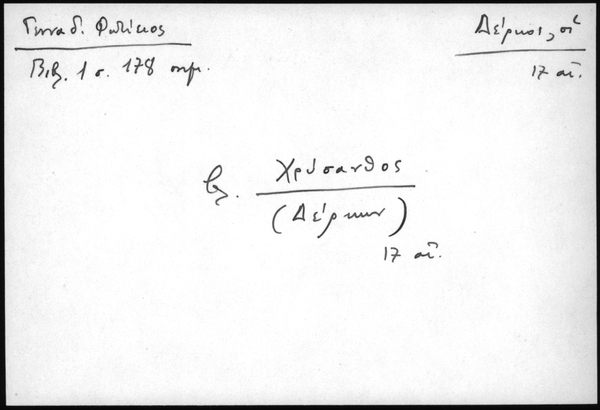 Γενναδ. Φωτίειος
Βιβ. 1 σ. 178 σημ.
Δέρκοι, οἱ
17 αἰ.
βλ. Χρύσανθος
(Δέρκων)
17 αἰ.